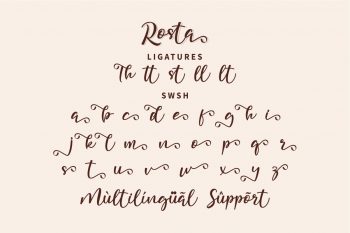 Rosta
LIGATURES
Th tt st ll lt
SWSH
a b c d e f g h i
j k l m n o p q r
s t u v w x y z
Mùltilíngüãl Sùppõrt